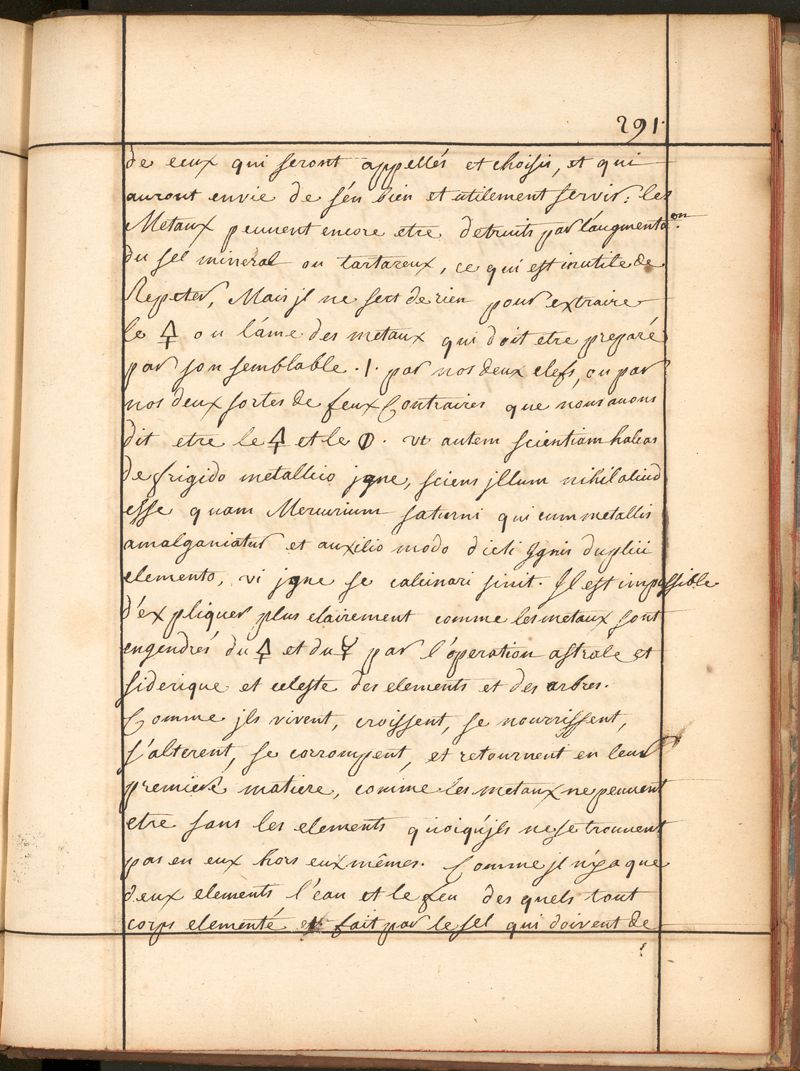 291.
de ceux qui seront appellés et choisis, et qui
auront envie de s'én bien et utilement servir; les
Metaux peuvent encore etre detruits par l'augmentaon.
du sel mineral ou tartareux, ce qui est inutile de
Repeter, Mais jl ne sert de rien pour extraire
le 🜍 ou l'áme des metaux qui doit etre preparé
par son semblable .1. par nos deux clefs, ou par
nos deux sortes de feux Contraires que nous avons
dit etre le 🜍 et le 🜕. vt autem scientiam habeas
de frigido metallico jgne, sciens jllum nihil aliud
esse quam Mercurium saturni qui cum metallis
amalganiatur et auxilio modo dicti Jgnis duplici
elemento, vi jgne se calcinari sinit. Jl est impossible
d'expliquer plus clairement comme les metaux sont
engendrés du 🜍 et du ☿ par l'óperation astrale et
siderique et celeste des elements et des arbres.
Comme jls vivent, croissent, se nourrissent,
s'alterent, se corrompent, et retournent en leur
premiere matiere, comme les metaux ne peuvent
etre sans les elements quoiqu'jls ne se trouvent
pas en eux hors eux mêmes. Comme jl n'ya que
deux elements l'eau et le feu des quels tout
corps elementé est fait par le sel qui doivent de